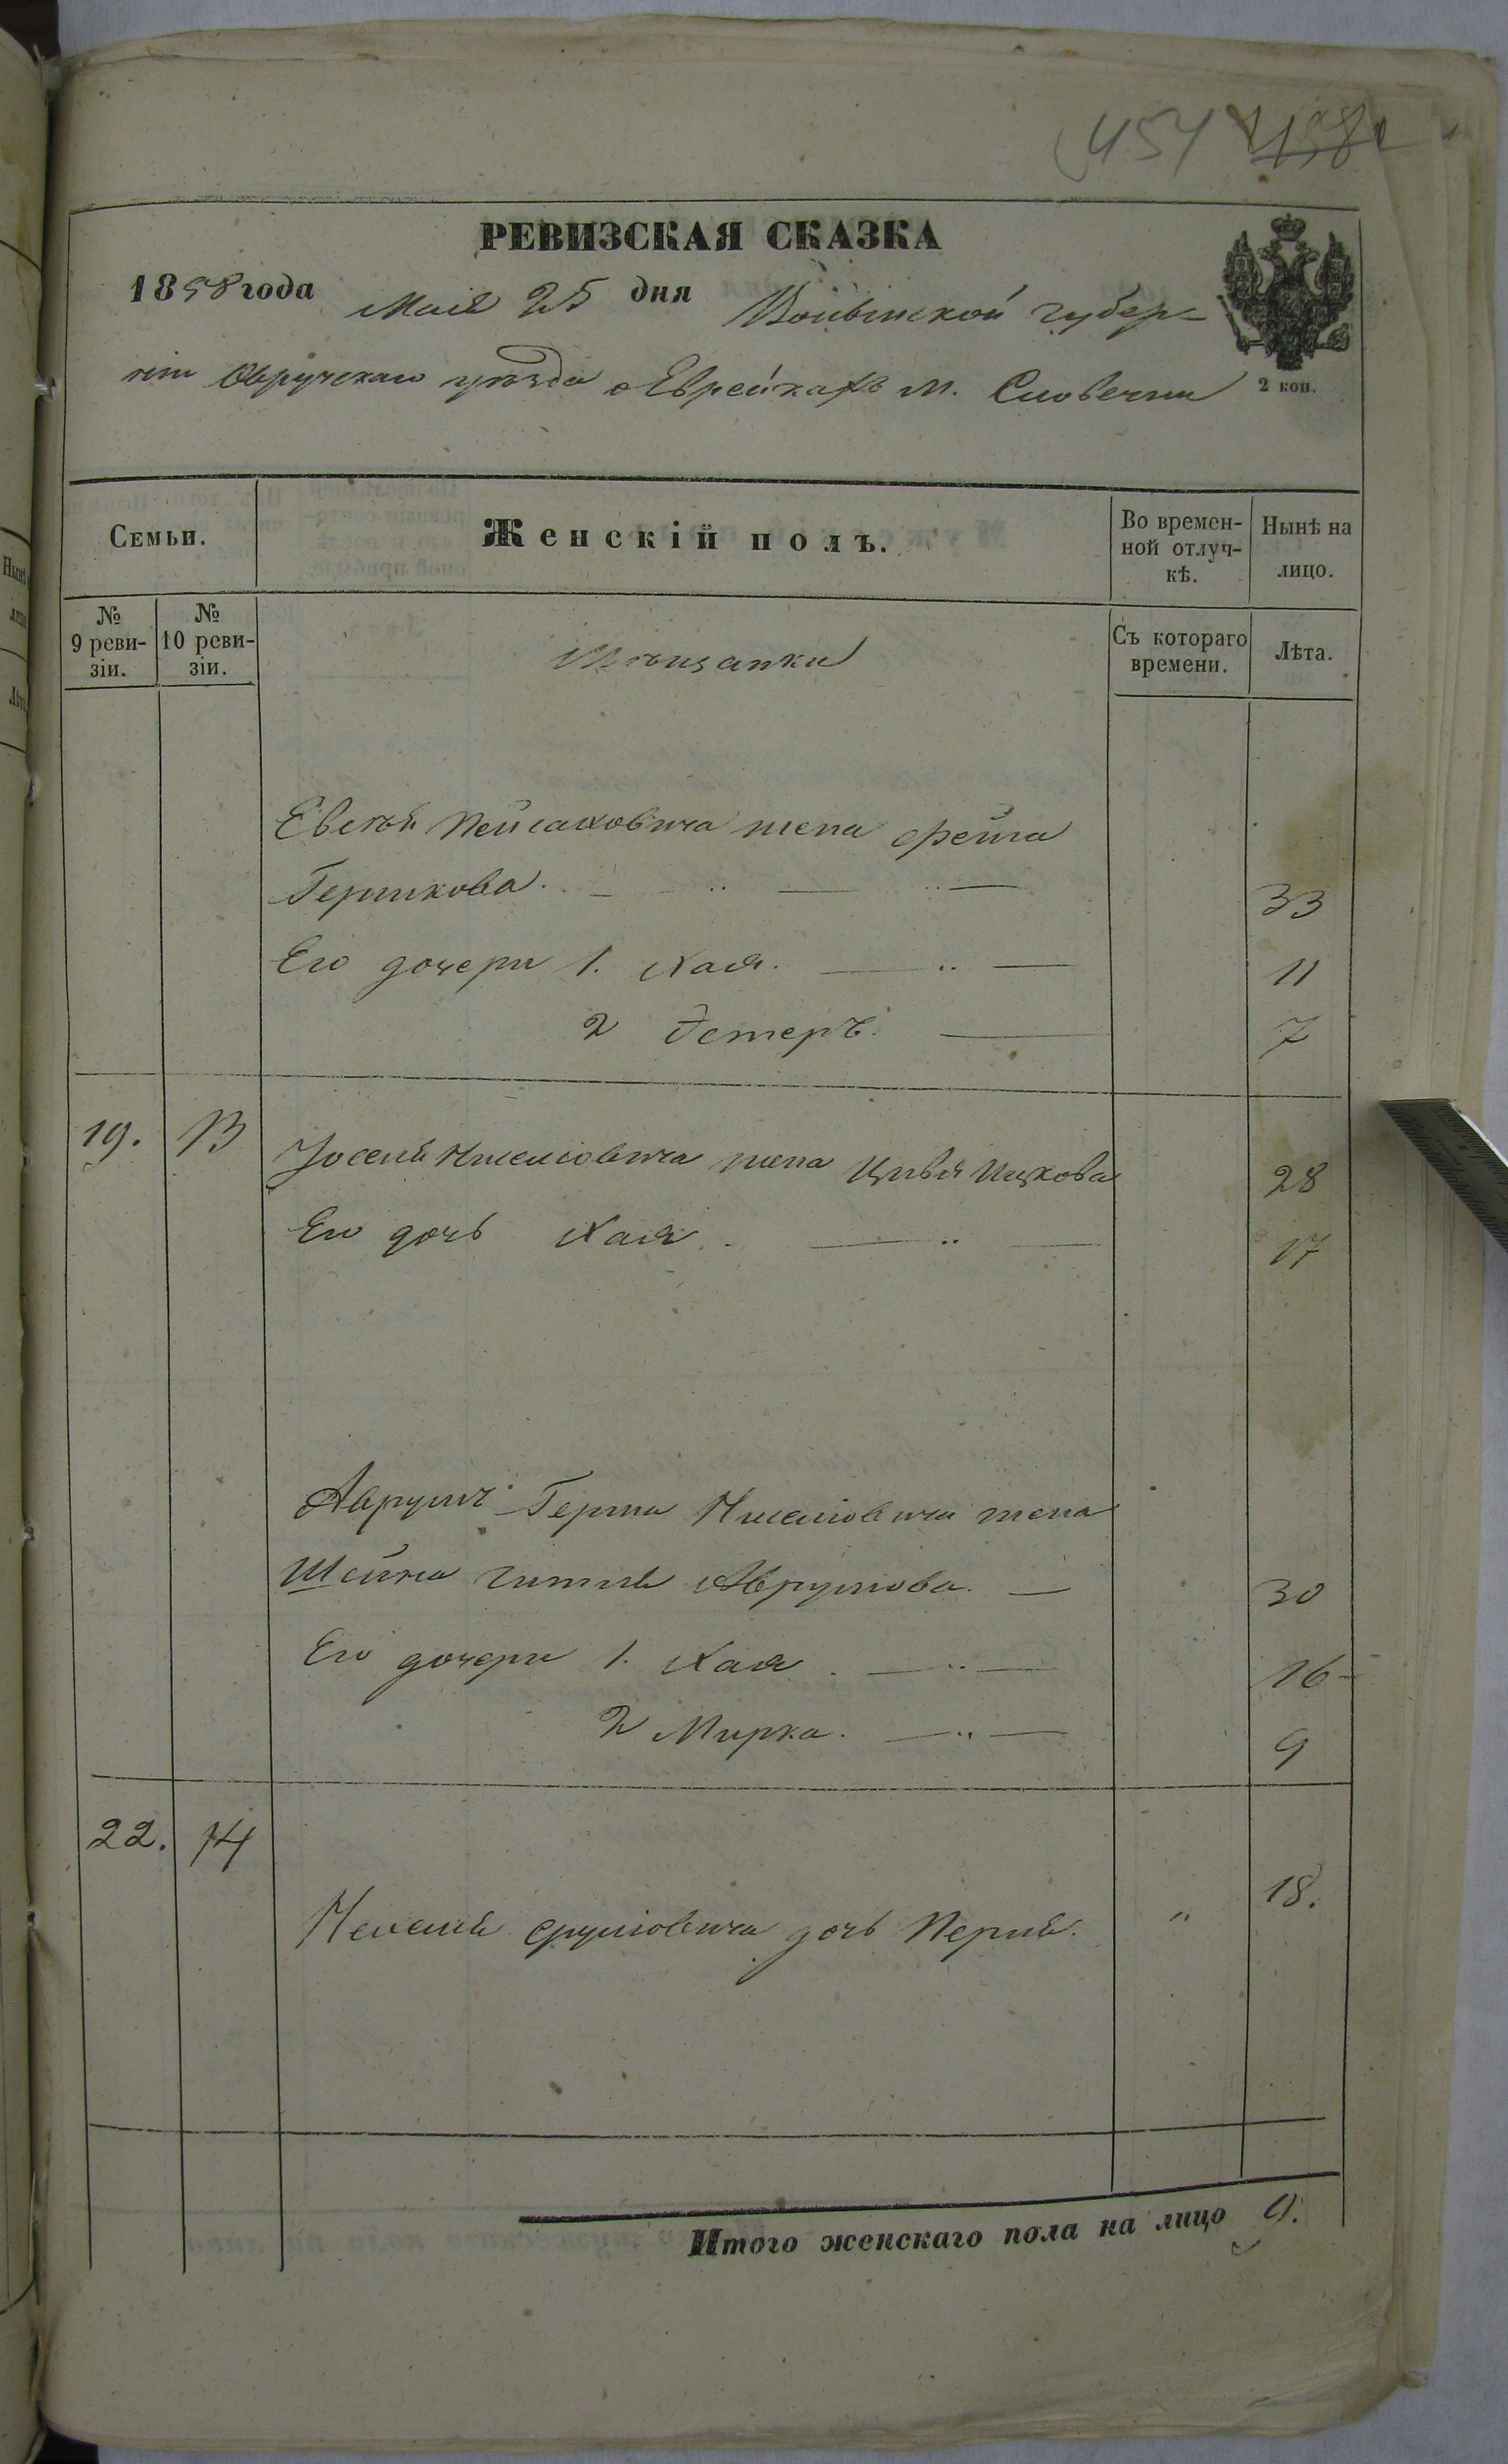 454 458
РЕВИЗСКАЯ СКАЗКА
1858 года Маія 25 дня Волынской губер-
ніи Овручскаго уѣзда о Еврейкахъ м. Словечны
2 коп.
Семьи.
Женскій полъ.
Во времен-
ной отлуч-
кѣ.
Нынѣ на
лицо.
№
9 реви-
зіи.
№
10 реви-
зіи.
Мѣщанки
Съ котораго
времени.
Лѣта.
Пейсаховича жена Фейга
Гершкова. 33
Его дочери 1. Хая. 11
2 Эстеръ. 7
19. 13 жена Цивья Ицкова 28
Его дочь Хая. 17
Аврумъ Герша жена
Шейна Аврумова. 30
Его дочери 1. Хая. 16
2 Мирка. 9
22. 14
Сруліовича дочь Перля. " 18.
Итого женскаго пола на лицо 9.